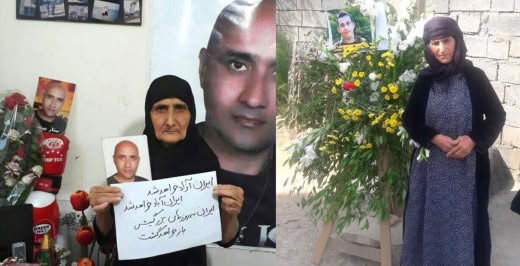 ایران آزاد خواهد شد
ایران آباد خواهد شد
ایران به روزهای بزرگیش
باز خواهد گشت